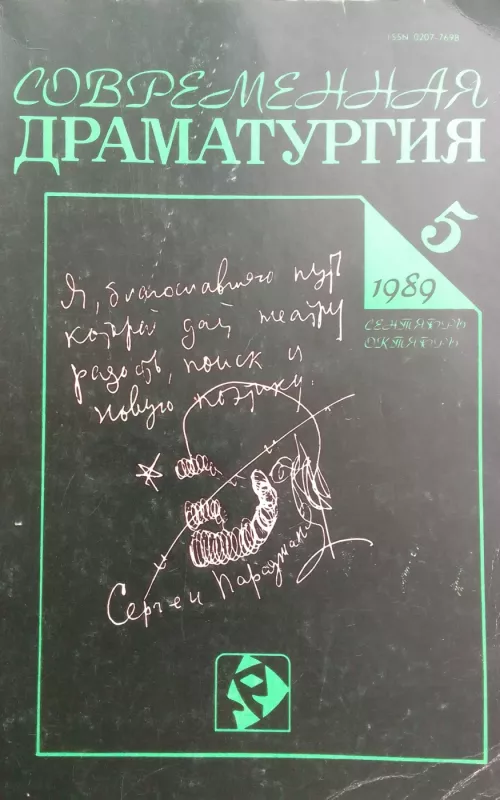 ISSN 0207-7698
СОВРЕМЕННАЯ
ДРАМАТУРГИЯ
5
1989
СЕНТЯБРЬ
ОКТЯБРЬ
Я, благославляю
который дай театру
радость, поиск и
новую поэтику.
Сергей Параджанов